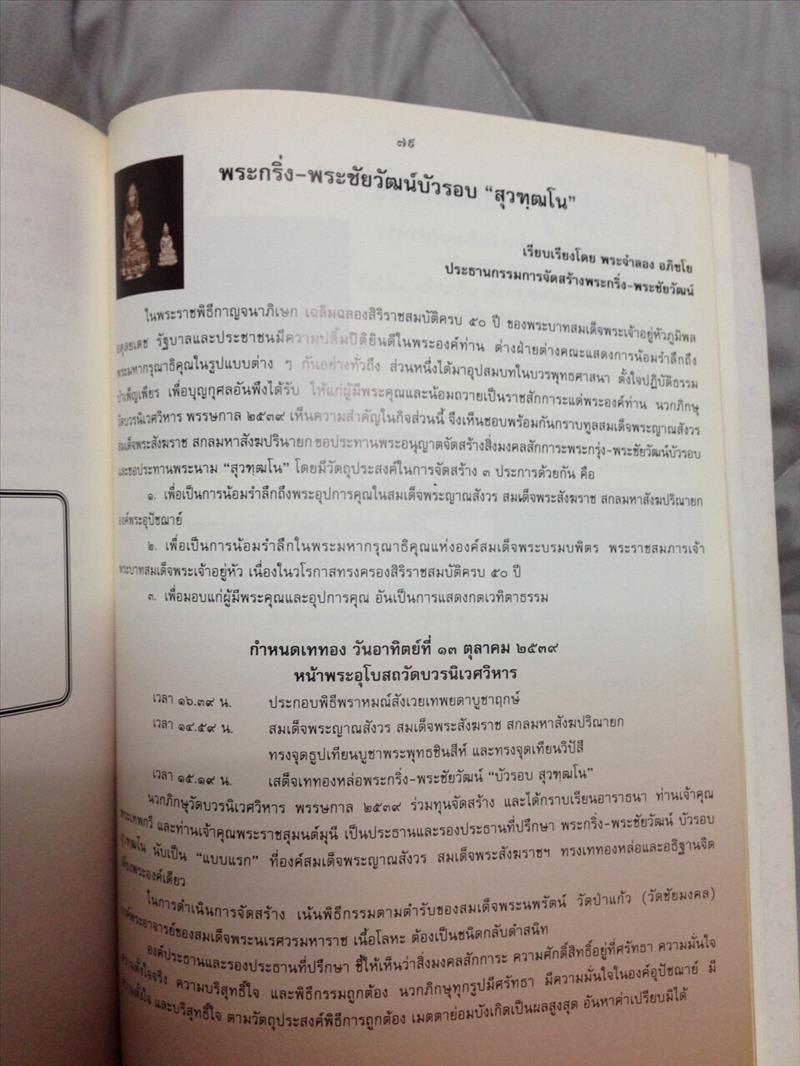 ๗๙
พระกริ่ง-พระชัยวัฒน์บัวรอบ “สุวฑฺฒโน”
เรียบเรียงโดย พระจำลอง อภิชโย
ประธานกรรมการจัดสร้างพระกริ่ง-พระชัยวัฒน์
ในพระราชพิธีกาญจนาภิเษก เฉลิมฉลองสิริราชสมบัติครบ ๕๐ ปี ของพระบาทสมเด็จพระเจ้าอยู่หัวภูมิพล
อดุลยเดช รัฐบาลและประชาชนมีความปลื้มปิติยินดีในพระองค์ท่าน ต่างฝ่ายต่างคณะแสดงการน้อมรำลึกถึง
พระมหากรุณาธิคุณในรูปแบบต่าง ๆ กันอย่างทั่วถึง ส่วนหนึ่งได้มาอุปสมบทในบวรพุทธศาสนา ตั้งใจปฏิบัติธรรม
บำเพ็ญเพียร เพื่อบุญกุศลอันพึงได้รับ ให้แก่ผู้มีพระคุณและน้อมถวายเป็นราชสักการะแด่พระองค์ท่าน นวกภิกษุ
วัดบวรนิเวศวิหาร พรรษกาล ๒๕๓๙ เห็นความสำคัญในกิจส่วนนี้ จึงเห็นชอบพร้อมกันกราบทูลสมเด็จพระญาณสังวร
สมเด็จพระสังฆราช สกลมหาสังฆปรินายก ขอประทานพระอนุญาตจัดสร้างสิ่งมงคลสักการะพระกรุ่ง-พระชัยวัฒน์บัวรอบ
และขอประทานพระนาม “สุวฑฺฒโน” โดยมีวัตถุประสงค์ในการจัดสร้าง ๓ ประการด้วยกัน คือ
๑. เพื่อเป็นการน้อมรำลึกถึงพระอุปการคุณในสมเด็จพระญาณสังวร สมเด็จพระสังฆราช สกลมหาสังฆปริณายก
องค์พระอุปัชฌาย์
๒. เพื่อเป็นการน้อมรำลึกในพระมหากรุณาธิคุณแห่งองค์สมเด็จพระบรมบพิตร พระราชสมภารเจ้า
พระบาทสมเด็จพระเจ้าอยู่หัว เนื่องในวโรกาสทรงครองสิริราชสมบัติครบ ๕๐ ปี
๓. เพื่อมอบแก่ผู้มีพระคุณและอุปการคุณ อันเป็นการแสดงกตเวทิตาธรรม
กำหนดเททอง วันอาทิตย์ที่ ๑๓ ตุลาคม ๒๕๓๙
หน้าพระอุโบสถวัดบวรนิเวศวิหาร
เวลา ๑๖.๓๙ น. ประกอบพิธีพราหมณ์สังเวยเทพยดาบูชาฤกษ์
เวลา ๑๔.๕๙ น. สมเด็จพระญาณสังวร สมเด็จพระสังฆราช สกลมหาสังฆปริณายก
ทรงจุดธูปเทียนบูชาพระพุทธชินสีห์ และทรงจุดเทียนวิปัสี
เวลา ๑๕.๑๙ น. เสด็จเททองหล่อพระกริ่ง-พระชัยวัฒน์ “บัวรอบ สุวฑฺฒโน”
นวกภิกษุวัดบวรนิเวศวิหาร พรรษกาล ๒๕๓๙ ร่วมทุนจัดสร้าง และได้กราบเรียนอาราธนา ท่านเจ้าคุณ
พระเทพกวี และท่านเจ้าคุณพระราชสุมนต์มุนี เป็นประธานและรองประธานที่ปรึกษา พระกริ่ง-พระชัยวัฒน์ บัวรอบ
สุวฑฺฒโน นับเป็น “แบบแรก” ที่องค์สมเด็จพระญาณสังวร สมเด็จพระสังฆราชฯ ทรงเททองหล่อและอธิฐานจิต
เพียงพระองค์เดียว
ในการดำเนินการจัดสร้าง เน้นพิธีกรรมตามตำรับของสมเด็จพระนพรัตน์ วัดป่าแก้ว (วัดชัยมงคล)
องค์พระอาจารย์ของสมเด็จพระนเรศวรมหาราช เนื้อโลหะ ต้องเป็นชนิดกลับดำสนิท
องค์ประธานและรองประธานที่ปรึกษา ชี้ให้เห็นว่าสิ่งมงคลสักการะ ความศักดิ์สิทธิ์อยู่ที่ศรัทธา ความมั่นใจ
ความตั้งใจจริง ความบริสุทธิ์ใจ และพิธีกรรมถูกต้อง นวกภิกษุทุกรูปมีศรัทธา มีความมั่นใจในองค์อุปัชฌาย์ มี
ความตั้งใจ และบริสุทธิ์ใจ ตามวัตถุประสงค์พิธีการถูกต้อง เมตตาย่อมบังเกิดเป็นผลสูงสุด อันหาค่าเปรียบมิได้